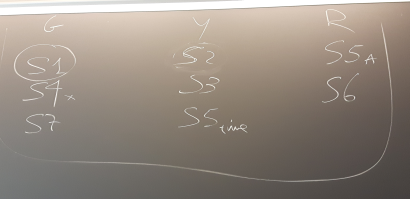 G Y R
S1 S2 S5A
S4x S3 S6
S7 S5time